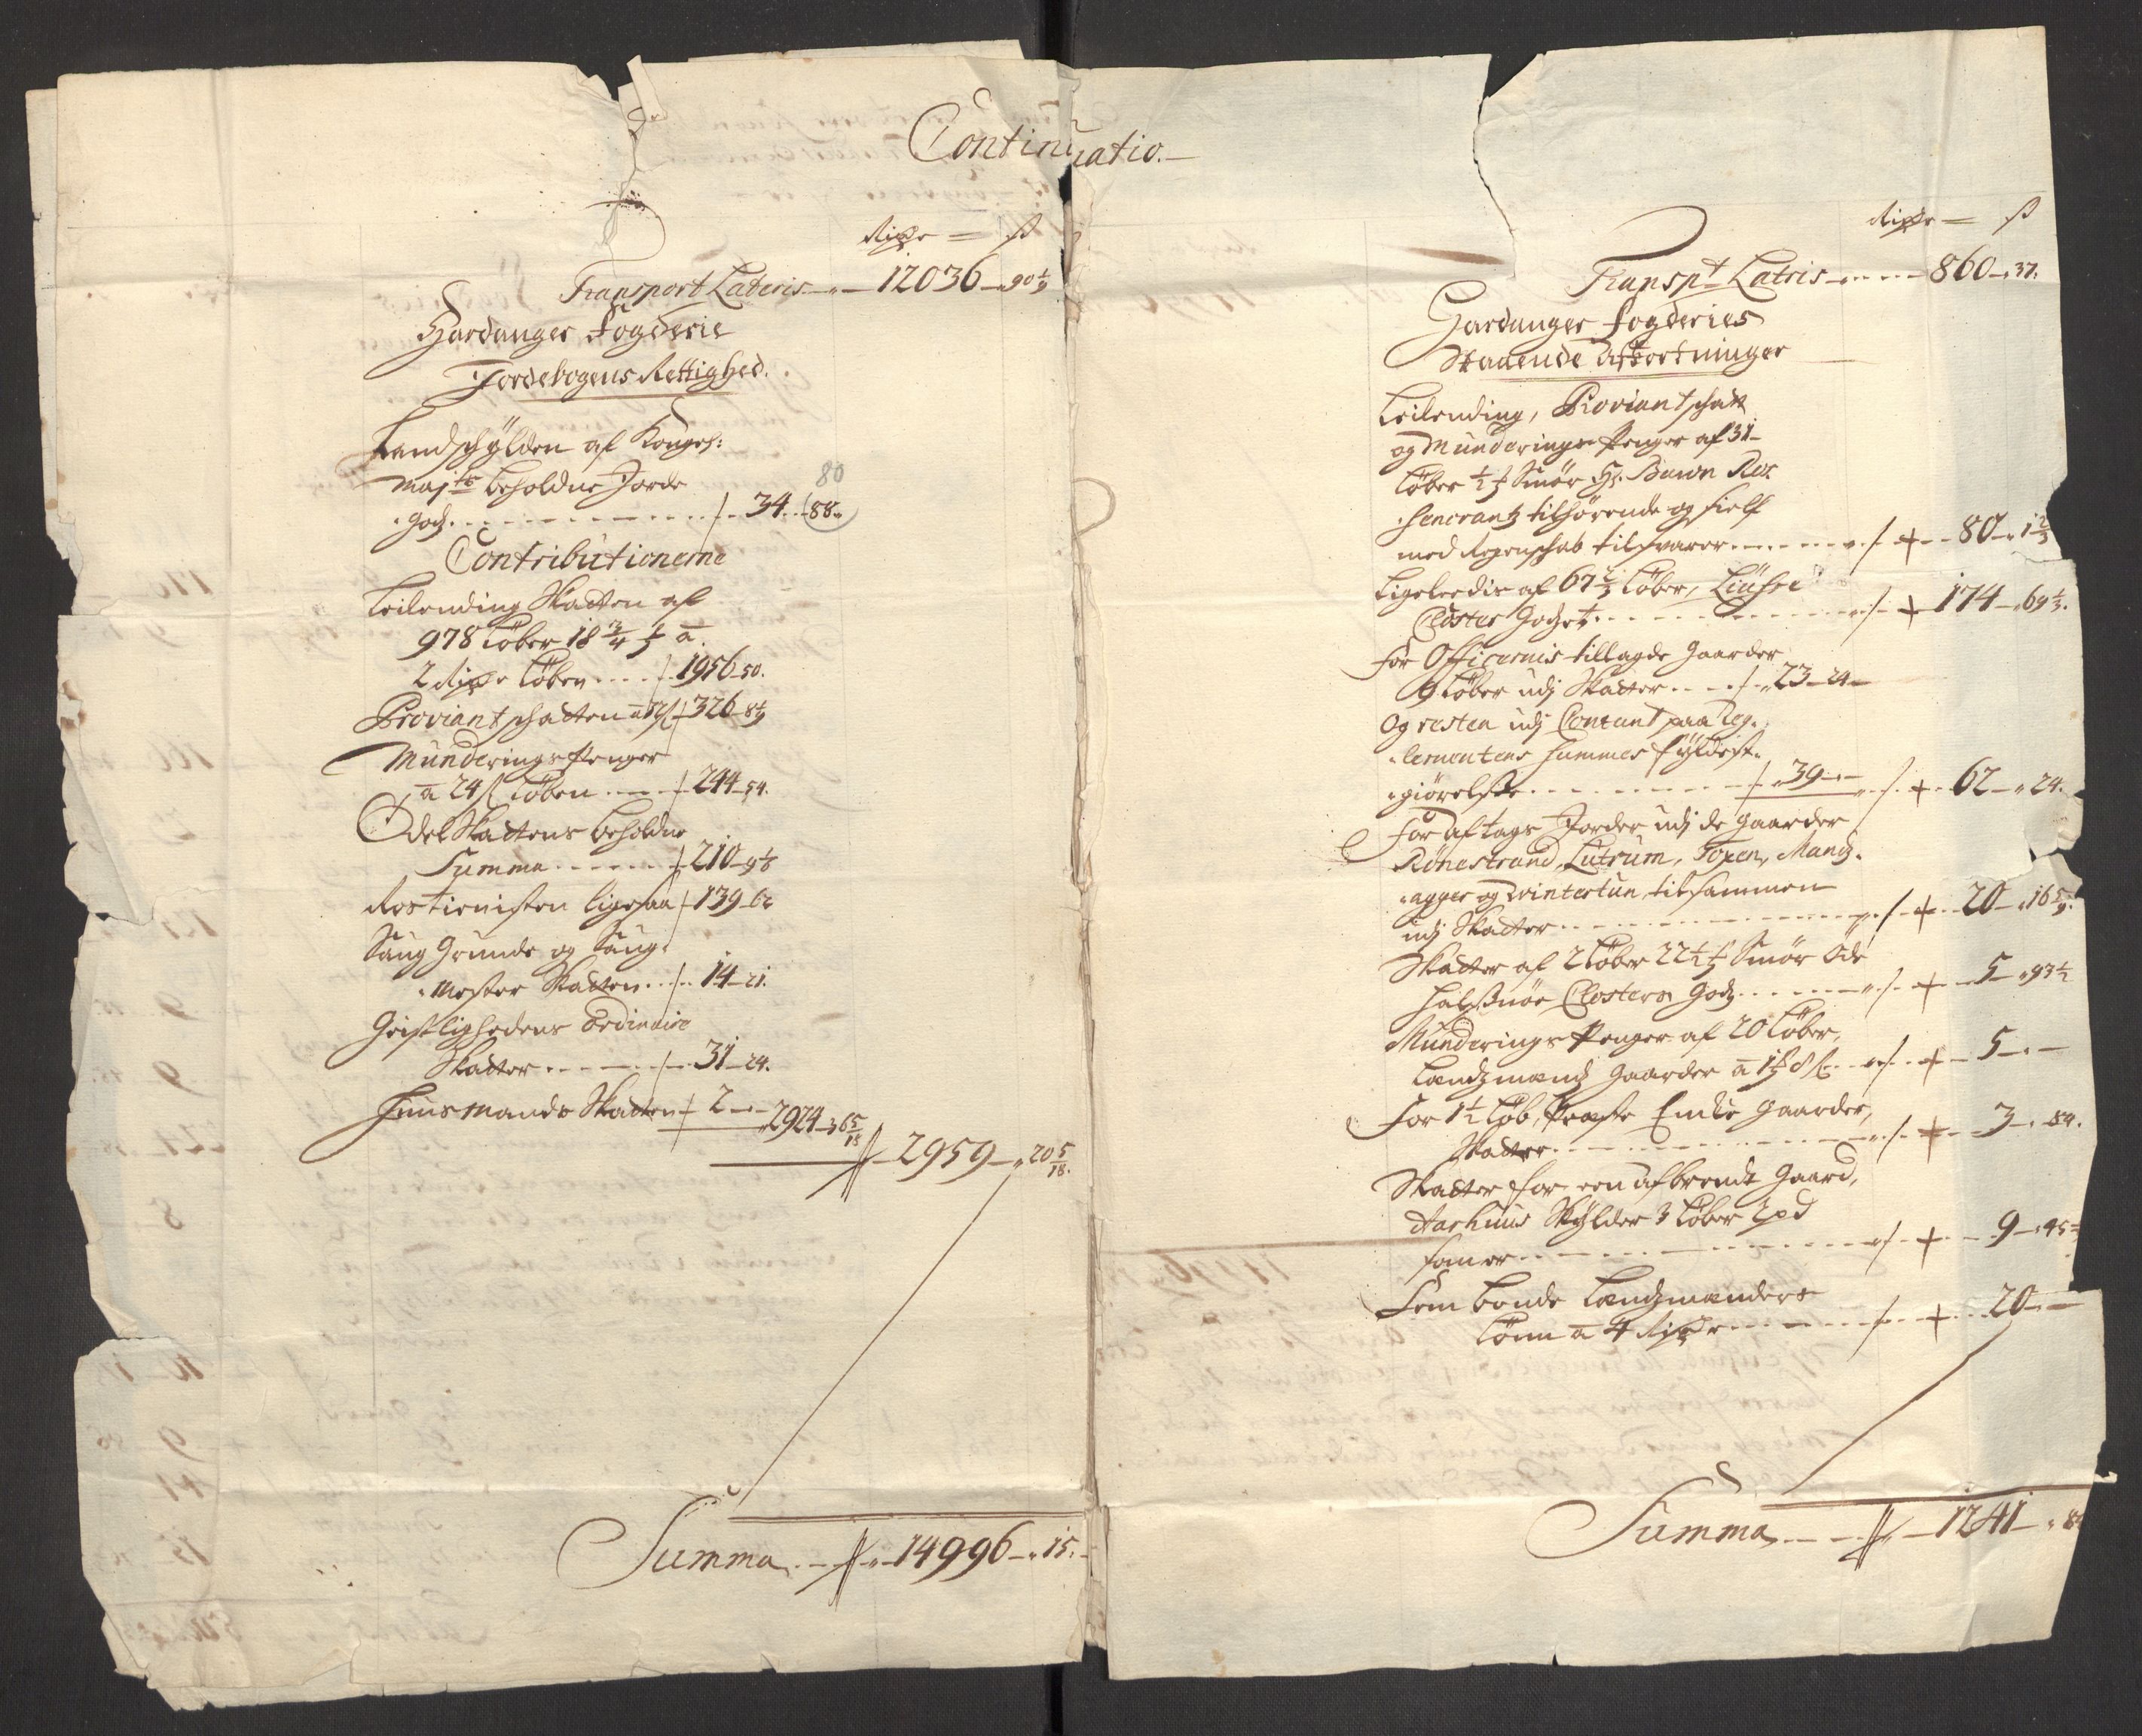 Continuatio.
Rixdr = ß
Transport Lateris 12036 90 1/9
Hardanger Fogderie
Jordebogens Rettighed.
Landschÿlden af Kongel:
Majts beholdne Jorde
godz 34 88
80
Contributionerne
Leilending Skatten af
978 Løber 18 3/4 ℔ a
2 Rixdr Løben 1956 50.
Proviantschatten 326 8 1/9
Munderings Penger
a 24 ß Løben 244 54.
Odel Skattens beholdne
Summa 210
Rostienisten ligesaa 139
Saug Grunde og Saug-
mester Skatten 14 21.
Geistlighedens Ordinaire
Skatter 31 24.
Huusmands Skatten 2
2924 36 5/18
2959 20 5/18.
Summa 14996 15.
Rixdr = ß
Transpt Latris 860 37.
Hardanger Fogderies
Staaende Afkortninger
Leilending, Proviantschatt
og Munderings Penger af 31
Løber 1/2 ℔ Smør Hr. Baron Ros-
encrantz tilhørende og sielf
med Regenschab tilsvarer 80 1 2/3
Ligeledis af 67 2/3 Løber, Liusse
Closter Godzet 174 69 1/3.
For Officernis tillagde Gaarder
9 Løber udj Skatter 23 24
Og resten udj Contant paa Reg-
lementens Summes fyldest-
giørelse 39
62 24.
For aftags Jorder udj de Gaarder
Rønestrand, Lutrum, Toxen, Mand-
agger og Wintertun, tilsammen
udj Skatter 20 16 5/9.
Skatter af 2 Løber 22 1/2 ℔ Smør Øde
Halssnøe Closters Godz 5 93 1/2
Munderings Penger af 20 Løber,
Lendzmend Gaarder 5
For 1 1/2 Løb, Præste Encke Gaarder,
Skatter 3 84.
Skatter for een afbrendt Gaard,
Aarhuus Skylder 3 Løber
9 45
Fem bonde Lendzmenders
Lønn a 4 Rixdr 20
Summa 1241